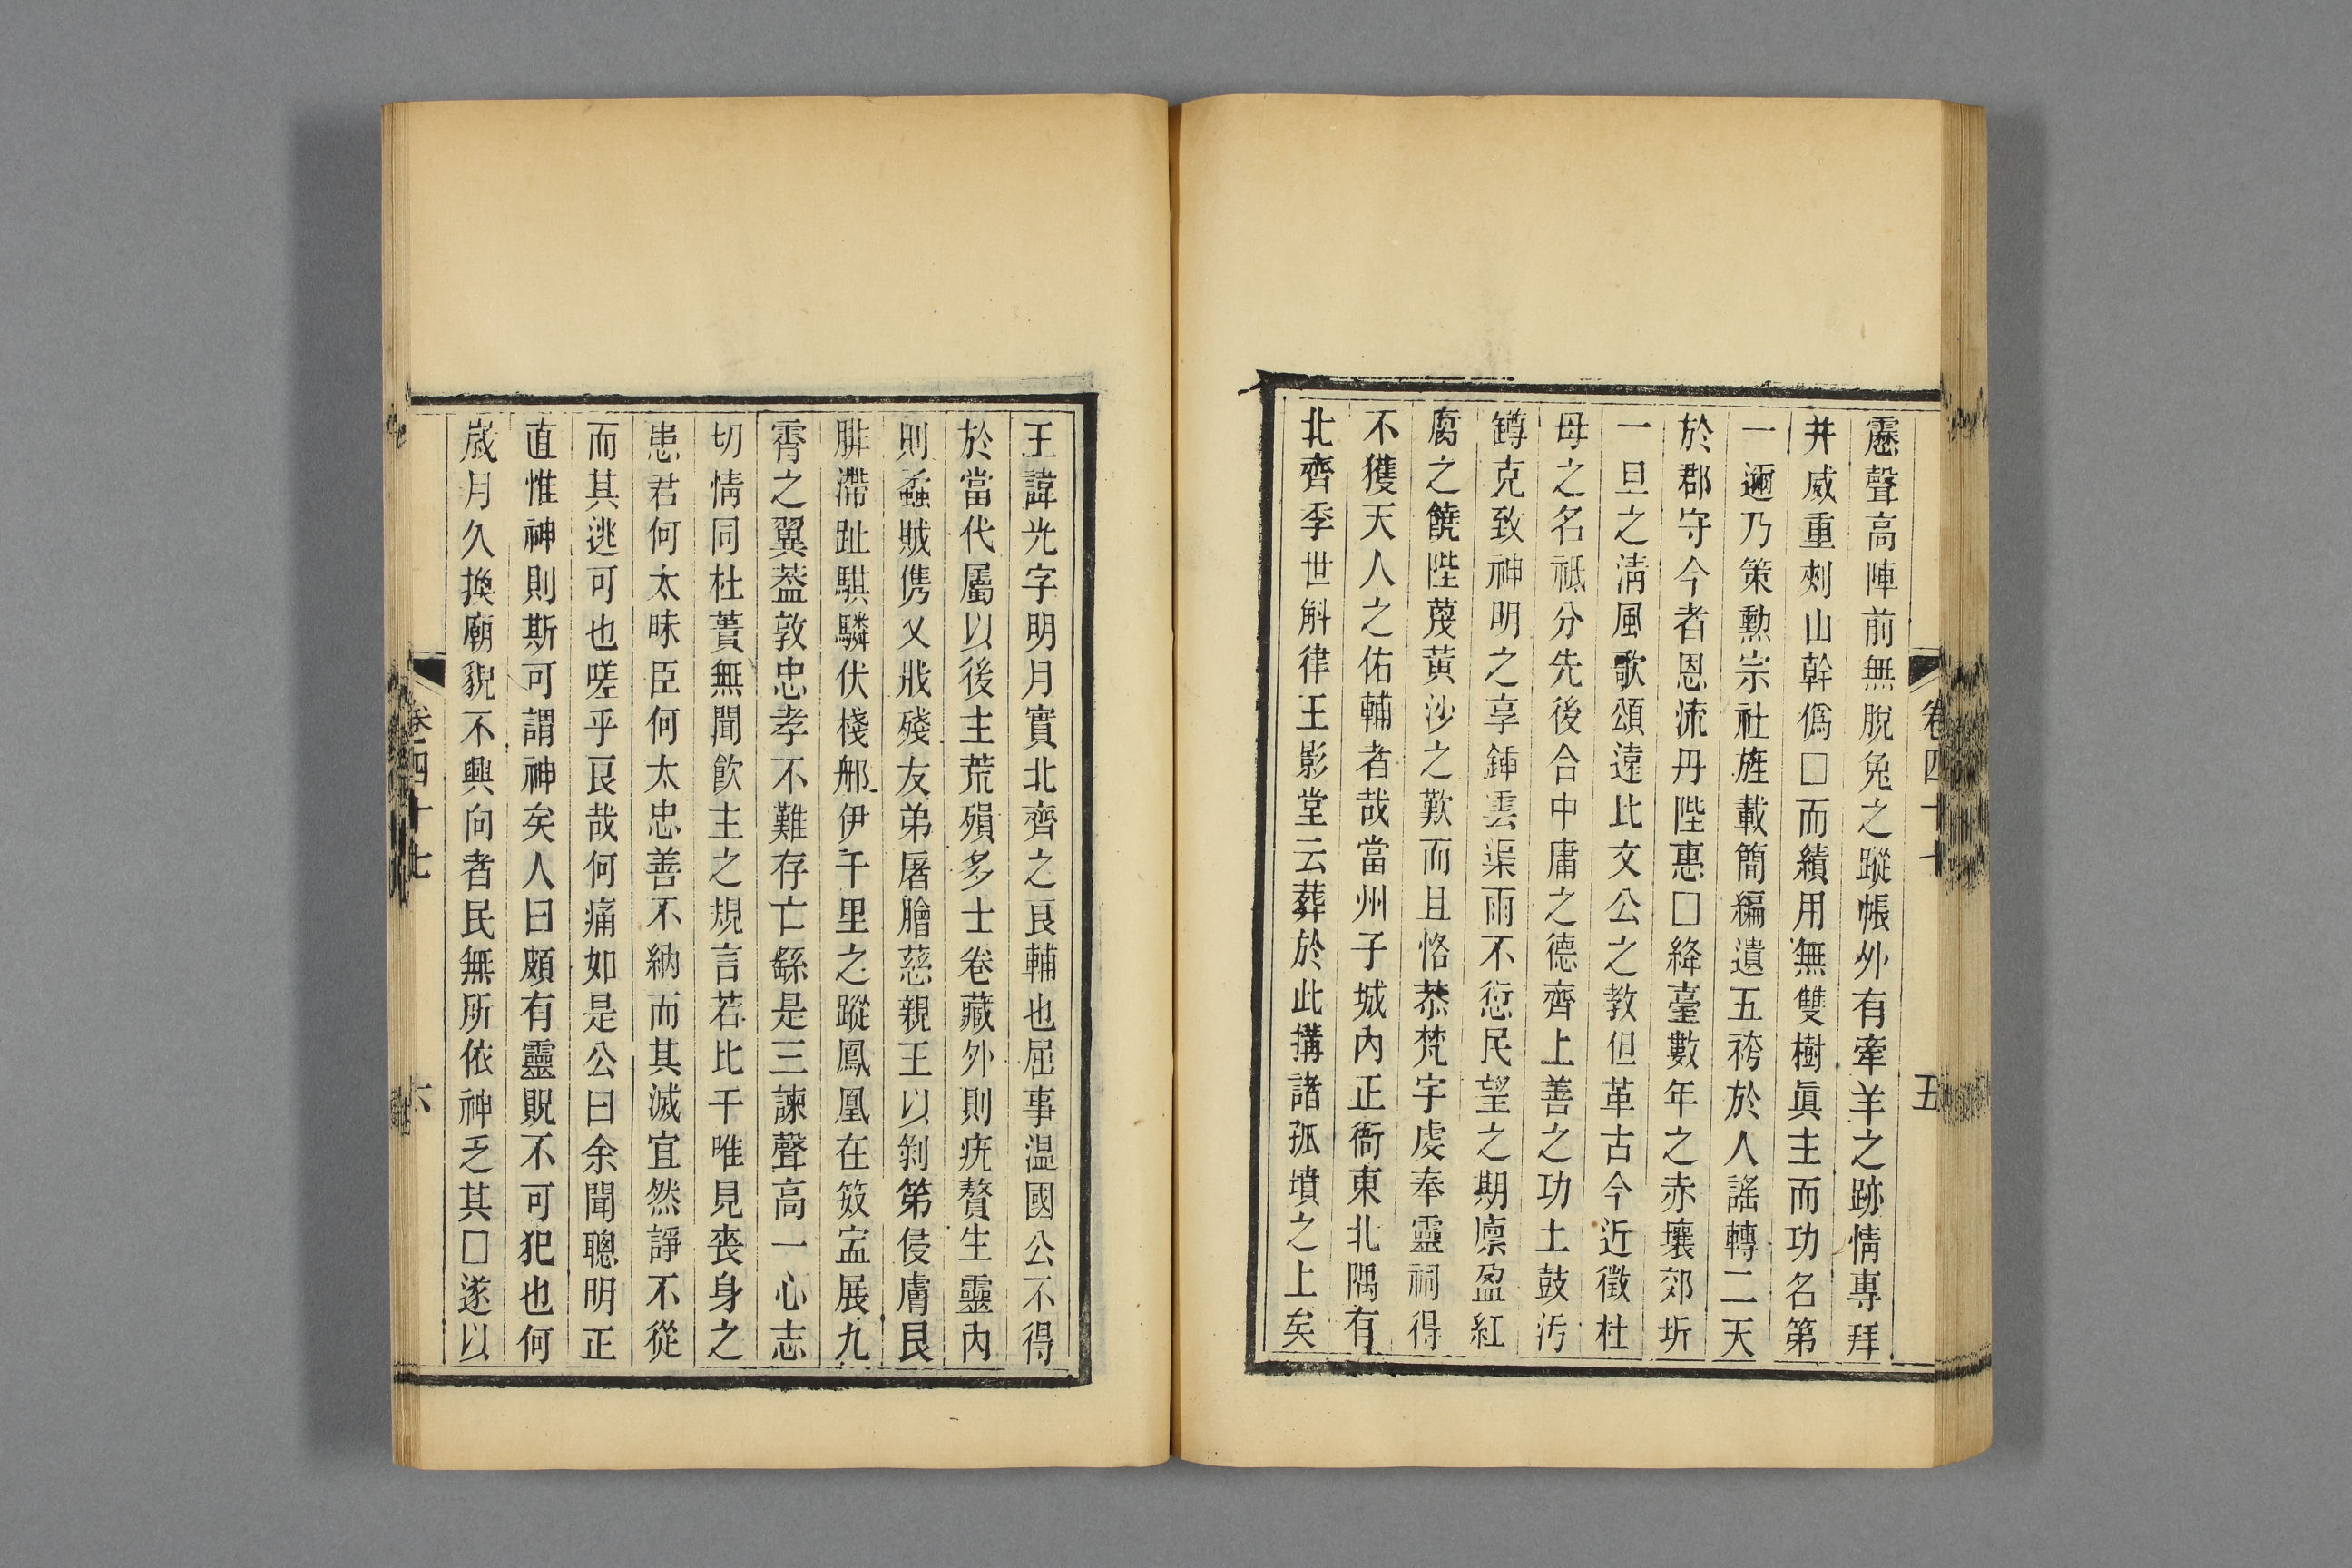 卷四十七
五
慿聲高陣前無脫兔之蹤帳外有牽羊之跡情專拜
井威重刾山幹僞□而績用無雙樹眞主而功名第
一邇乃策勲宗社旌載簡編遺五袴於人謠轉二天
於郡守今者恩流丹陛惠□絳臺數年之赤壤郊圻
一旦之淸風歌頌遠比文公之教但革古今近徵杜
母之名祗分先後合中庸之德齊上善之功土鼓汚
罇克致神明之享鍤雲渠雨不愆民望之期廪盈紅
腐之饒陛蔑黃沙之歎而且恪恭梵宇虔奉靈祠得
不獲天人之佑輔者哉當州子城內正衙東北隅有
北齊季世斛律王影堂云葬於此搆諸孤墳之上矣
王諱光字明月實北齊之良輔也屈事温國公不得
於當代屬以後主荒殞多士卷藏外則疣贅生靈內
則蟊賊儁乂戕殘友弟屠膾慈親王以剝第侵膚艮
腓滯趾騏驎伏櫪郍伊千里之蹤鳳凰在笯寍展九
霄之翼葢敦忠孝不難存亡繇是三諫聲高一心志
切情同杜蕢無聞飮主之規言若比干唯見喪身之
患君何太昧臣何太忠善不納而其滅宜然諍不從
而其逃可也嗟乎良哉何痛如是公曰余聞聰明正
直惟神則斯可謂神矣人曰頗有靈貺不可犯也何
歲月久換廟貌不興向者民無所依神乏其□遂以
卷四十七
六